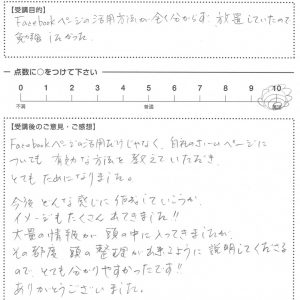 【受講目的】
Facebookページの活用方法が全く分からず、放置していたので
勉強したかった。
点数に○をつけて下さい
0 1 2 3 4 5 6 7 8 9 10
不満 普通
【受講後のご意見・ご感想】
Facebookページの活用だけじゃなく、自社のホームページに
ついても有効な方法を教えていただき
とてもためになりました。
今後どんな感じに作成していこうか、
イメージもたくさんわいてきました!!
大量の情報が頭の中に入ってきましたが、
その都度頭の整理ができるように説明してくださる
ので、とても分かりやすかったです!!
ありがとうございました。